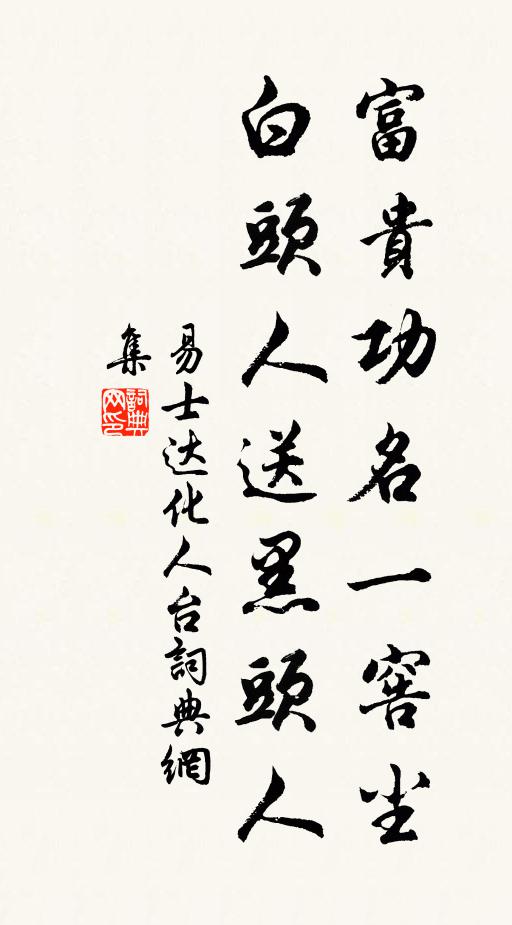 富貴功名一窖尘
白頭人送黑頭人
易士达化人台詞典網
集
詞典
网印